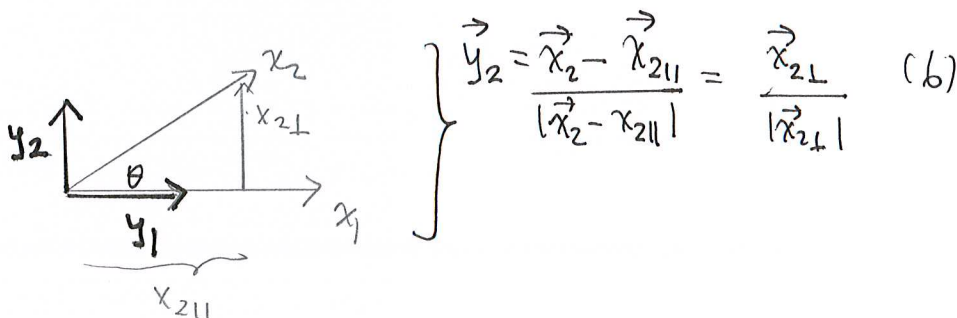 x₂
x₂⊥
y₂
θ
y₁
x₁
x₂||
y⃗₂ = (x⃗₂ - x⃗₂||) / |x⃗₂ - x₂||| = x⃗₂⊥ / |x⃗₂⊥| (6)